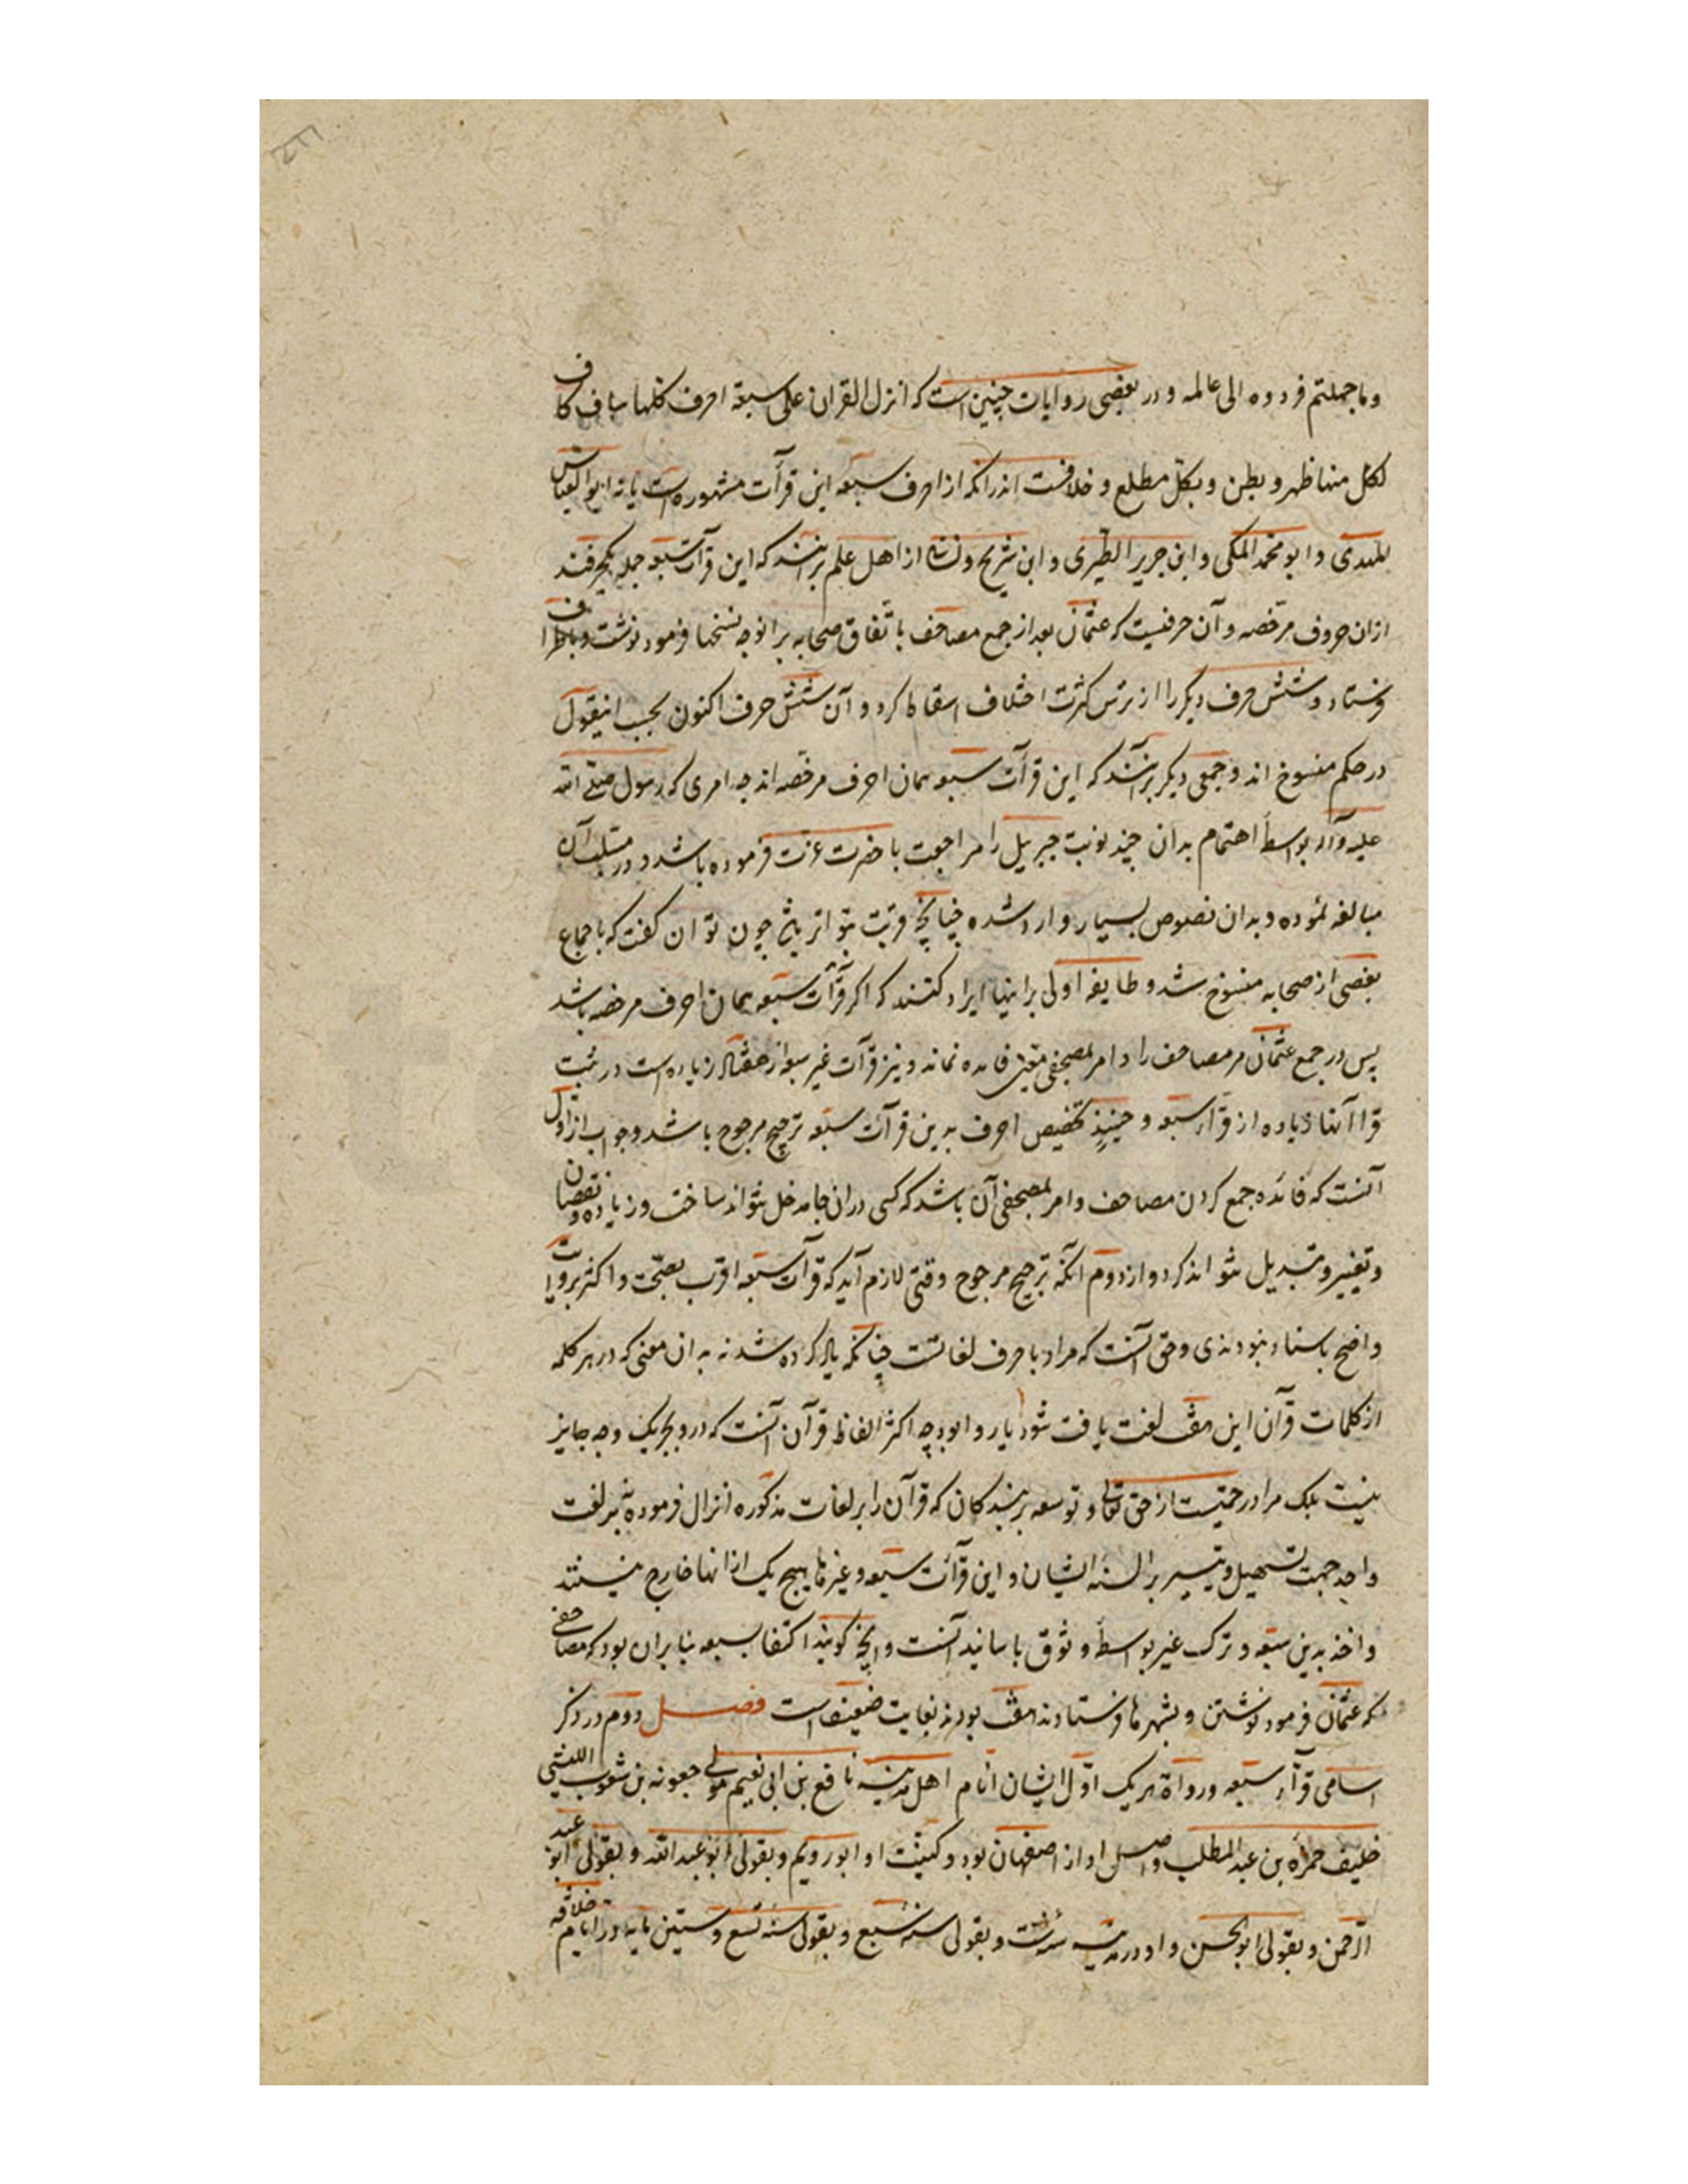 وما جهلتم فردوه الی عالمه و در بعضی روایات چنین است که انزل القران علی سبعة احرف کلها شاف کاف
لکل منها ظهر و بطن و بکل مطلع و خلافست اندر انکه از احرف سبعه این قرآت مشهوره است یا نه ابو العباس
المهدی و ابو محمد المکی و ابن جریر الطبری و ابن شریح و از اهل علم برانند که این قرآت سبعه جمله یکحرفند
ازان حروف مرخصه و آن حرفیست که عثمان بعد از جمع مصاحف باتفاق صحابه بر انوجه نسخها فرمود نوشت و باطراف
فرستاد و شش حرف دیگر را از ترس کثرت اختلاف اسقاط کرد و آن شش حرف اکنون بحسب اینقول
در حکم منسوخ اند و جمعی دیگر برآنند که این قرآت سبعه همان احرف مرخصه اند چه امری که رسول صلی الله
علیه وآله بواسطهٔ اهتمام بدان چند نوبت جبریل را مراجعت با حضرت عزت فرموده باشد و در طلب آن
مبالغه نموده و بدان نصوص بسیار وارد شده چنانچه قریب بتواتر چون توان کفت که باجماع
بعضی از صحابه منسوخ شد و طایفه اولی براینها ایراد کنند که اکر قرآت سبعه همان احرف مرخصه باشد
پس در جمع عثمان مر مصاحف را و امر بمصحفی معین فایده نماند و نیز قرآت غیر سبعه از هفتاد زیاده است در ثبت
قراآنها زیاده از قرآء سبعه و حینئذ تخصیص احرف بدین قرآت سبعه ترجیح مرجوح باشد و جواب از اول
آنست که فائده جمع کردن مصاحف و امر بمصحفی آن باشد که کسی دران جامدخل نتواند ساخت و زیاده و نقصان
و تغییر و تبدیل نتواند کرد و از دوم آنکه ترجیح مرجوح وقتی لازم آید که قرآت سبعه اقرب بصحت و اکثر بروایت
و اضح باسناد نبودندی و حق آنست که مراد باحرف لغاتست چنانکه یاد کرده شد نه بدان معنی که در هر کلمه
از کلمات قرآن این هفت لغت یافت شود یا روا بود چه اکثر الفاظ قرآن آنست که درو بجز یک وجه جایز
نیست بلک مراد رحمتیست از حق تعالی و توسعه بر بندکان که قرآن را بر لغات مذکوره انزال فرمود نه بر لغت
واحد جهت تسهیل و تیسیر بر السنه ایشان و این قرآت سبعه و غیرها هیچ یک از انها خارج نیستند
و اخذ بدین سبعه و ترک غیر بواسطهٔ وثوق باسانید آنست و آنچه کویند اکتفا بسبعه بنابران بود که مصاحفی
که عثمان فرمود نوشتن و بشهرها فرستادند هفت بودند بغایت ضعیف است فصل دوم در ذکر
اسامی قرآء سبعه و رواة هر یک اول ایشان امام اهل مدینه نافع بن ابی نعیم مولی جعونه بن شعوب اللیثی
حلیف حمزه بن عبد المطلب و اصل او از اصفهان بود و کنیت او ابو رویم و بقولی ابو عبد الله و بقولی ابو عبد
الرحمن و بقولی ابو الحسن و او در مدینه و بقولی سنه سبع و بقولی سنه تسع و ستین مایه در ایام خلافه